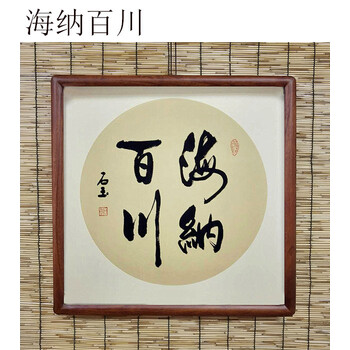 海纳百川
海納
百川
石玉